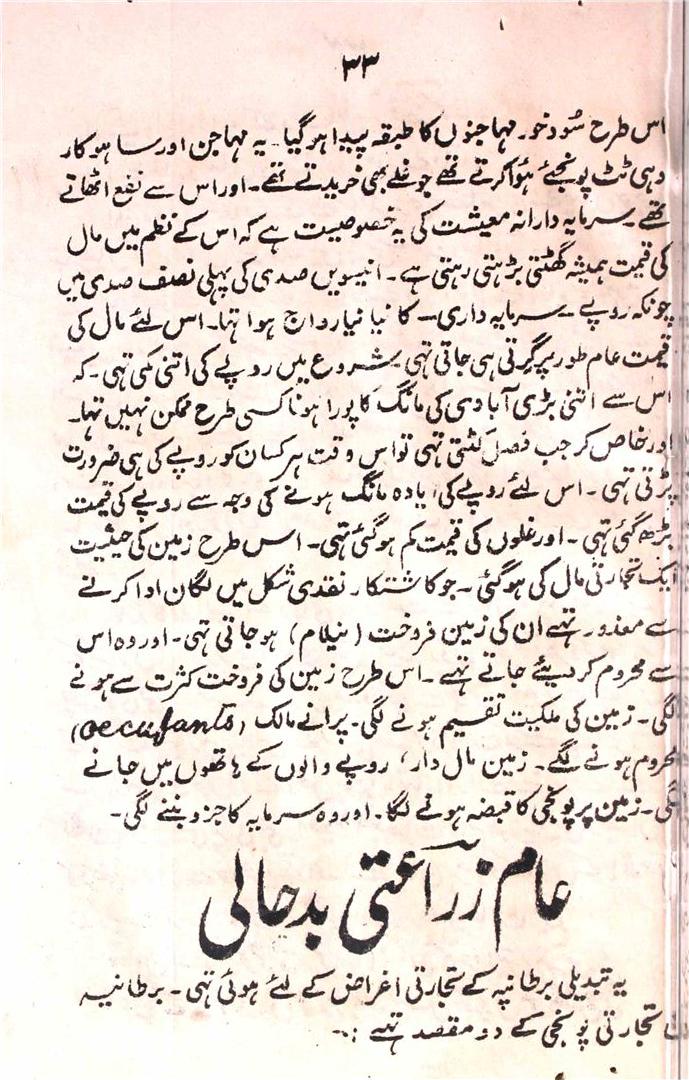 ۳۳
اس طرح سُود خور مہاجنوں کا طبقہ پیدا ہو گیا۔ یہ مہاجن اور ساہوکار
وہی ٹٹ پونجئے ہوا کرتے تھے جو غلے بھی خریدتے تھے۔ اور اس سے نفع اٹھاتے
تھے۔ سرمایہ دارانہ معیشت کی یہ خصوصیت ہے کہ اس کے نظم میں مال
کی قیمت ہمیشہ گھٹتی بڑھتی رہتی ہے۔ انیسویں صدی کی پہلی نصف صدی میں
چونکہ روپے۔ سرمایہ داری۔ کا نیا نیا رواج ہوا تہا۔ اس لئے مال کی
قیمت عام طور پر گرتی ہی جاتی تہی شروع میں روپے کی اتنی کمی تہی۔ کہ
اس سے اتنی بڑی آبادی کی مانگ کا پورا ہونا کسی طرح ممکن نہیں تہا۔
اور خاص کر جب فصل کٹتی تہی تو اس وقت ہر کسان کو روپے کی ہی ضرورت
پڑتی تہی۔ اس لئے روپے کی زیادہ مانگ ہونے کی وجہ سے روپے کی قیمت
بڑھ گئی تہی۔ اور غلوں کی قیمت کم ہو گئی تہی۔ اس طرح زمین کی حیثیت
ایک تجارتی مال کی ہو گئی۔ جو کاشتکار نقدی شکل میں لگان ادا کرنے
سے معذور تہے ان کی زمین فروخت (نیلام) ہو جاتی تہی۔ اور وہ اس
سے محروم کر دیئے جاتے تہے۔ اس طرح زمین کی فروخت کثرت سے ہونے
لگی۔ زمین کی ملکیت تقسیم ہونے لگی۔ پرانے مالک (occufants)
محروم ہونے لگے۔ زمین مال دار، روپے والوں کے ہاتھوں میں جانے
لگی۔ زمین پر پونجی کا قبضہ ہونے لگا۔ اور وہ سرمایہ کا جزو بننے لگی۔
عام زراعتی بدحالی
یہ تبدیلی برطانیہ کے تجارتی اغراض کے لئے ہوئی تہی۔ برطانیہ
تجارتی پونجی کے دو مقصد تہے :۔